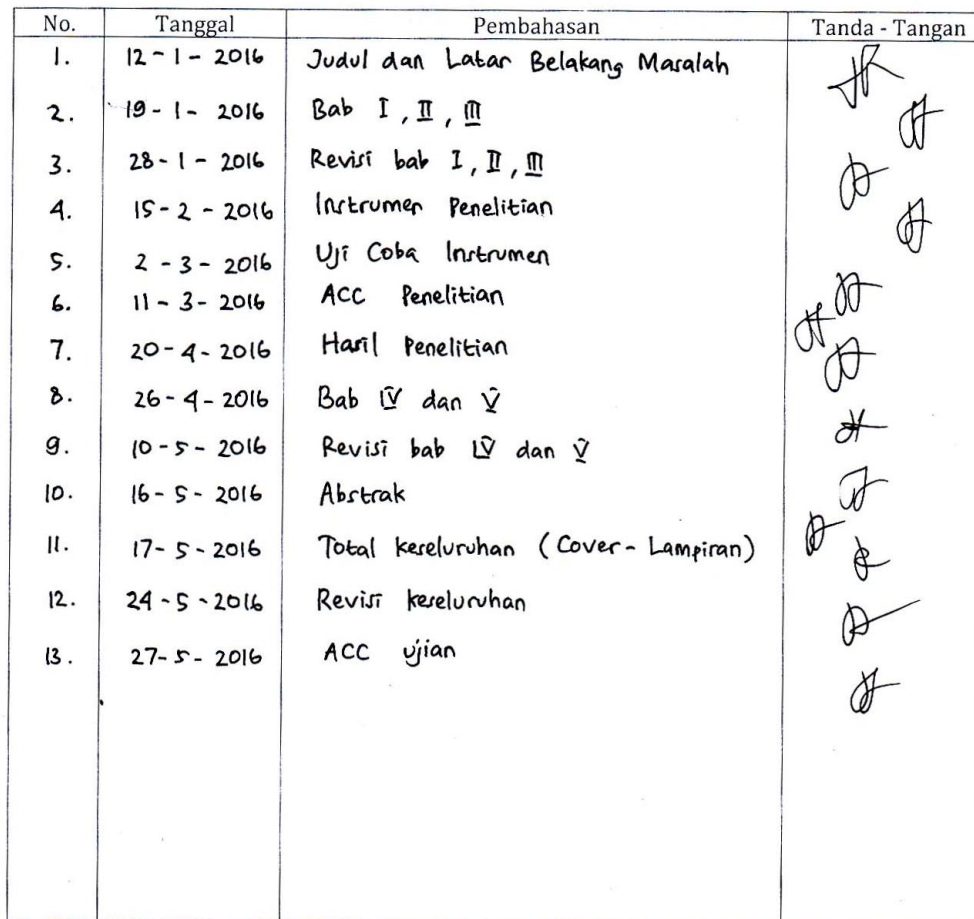 No. Tanggal Pembahasan Tanda - Tangan
1. 12 - 1 - 2016 Judul dan Latar Belakang Masalah
2. 19 - 1 - 2016 Bab I, II, III
3. 28 - 1 - 2016 Revisi bab I, II, III
4. 15 - 2 - 2016 Instrumen Penelitian
5. 2 - 3 - 2016 Uji Coba Instrumen
6. 11 - 3 - 2016 ACC Penelitian
7. 20 - 4 - 2016 Hasil Penelitian
8. 26 - 4 - 2016 Bab IV dan V
9. 10 - 5 - 2016 Revisi bab IV dan V
10. 16 - 5 - 2016 Abstrak
11. 17 - 5 - 2016 Total keseluruhan (Cover - Lampiran)
12. 24 - 5 - 2016 Revisi keseluruhan
13. 27 - 5 - 2016 ACC ujian